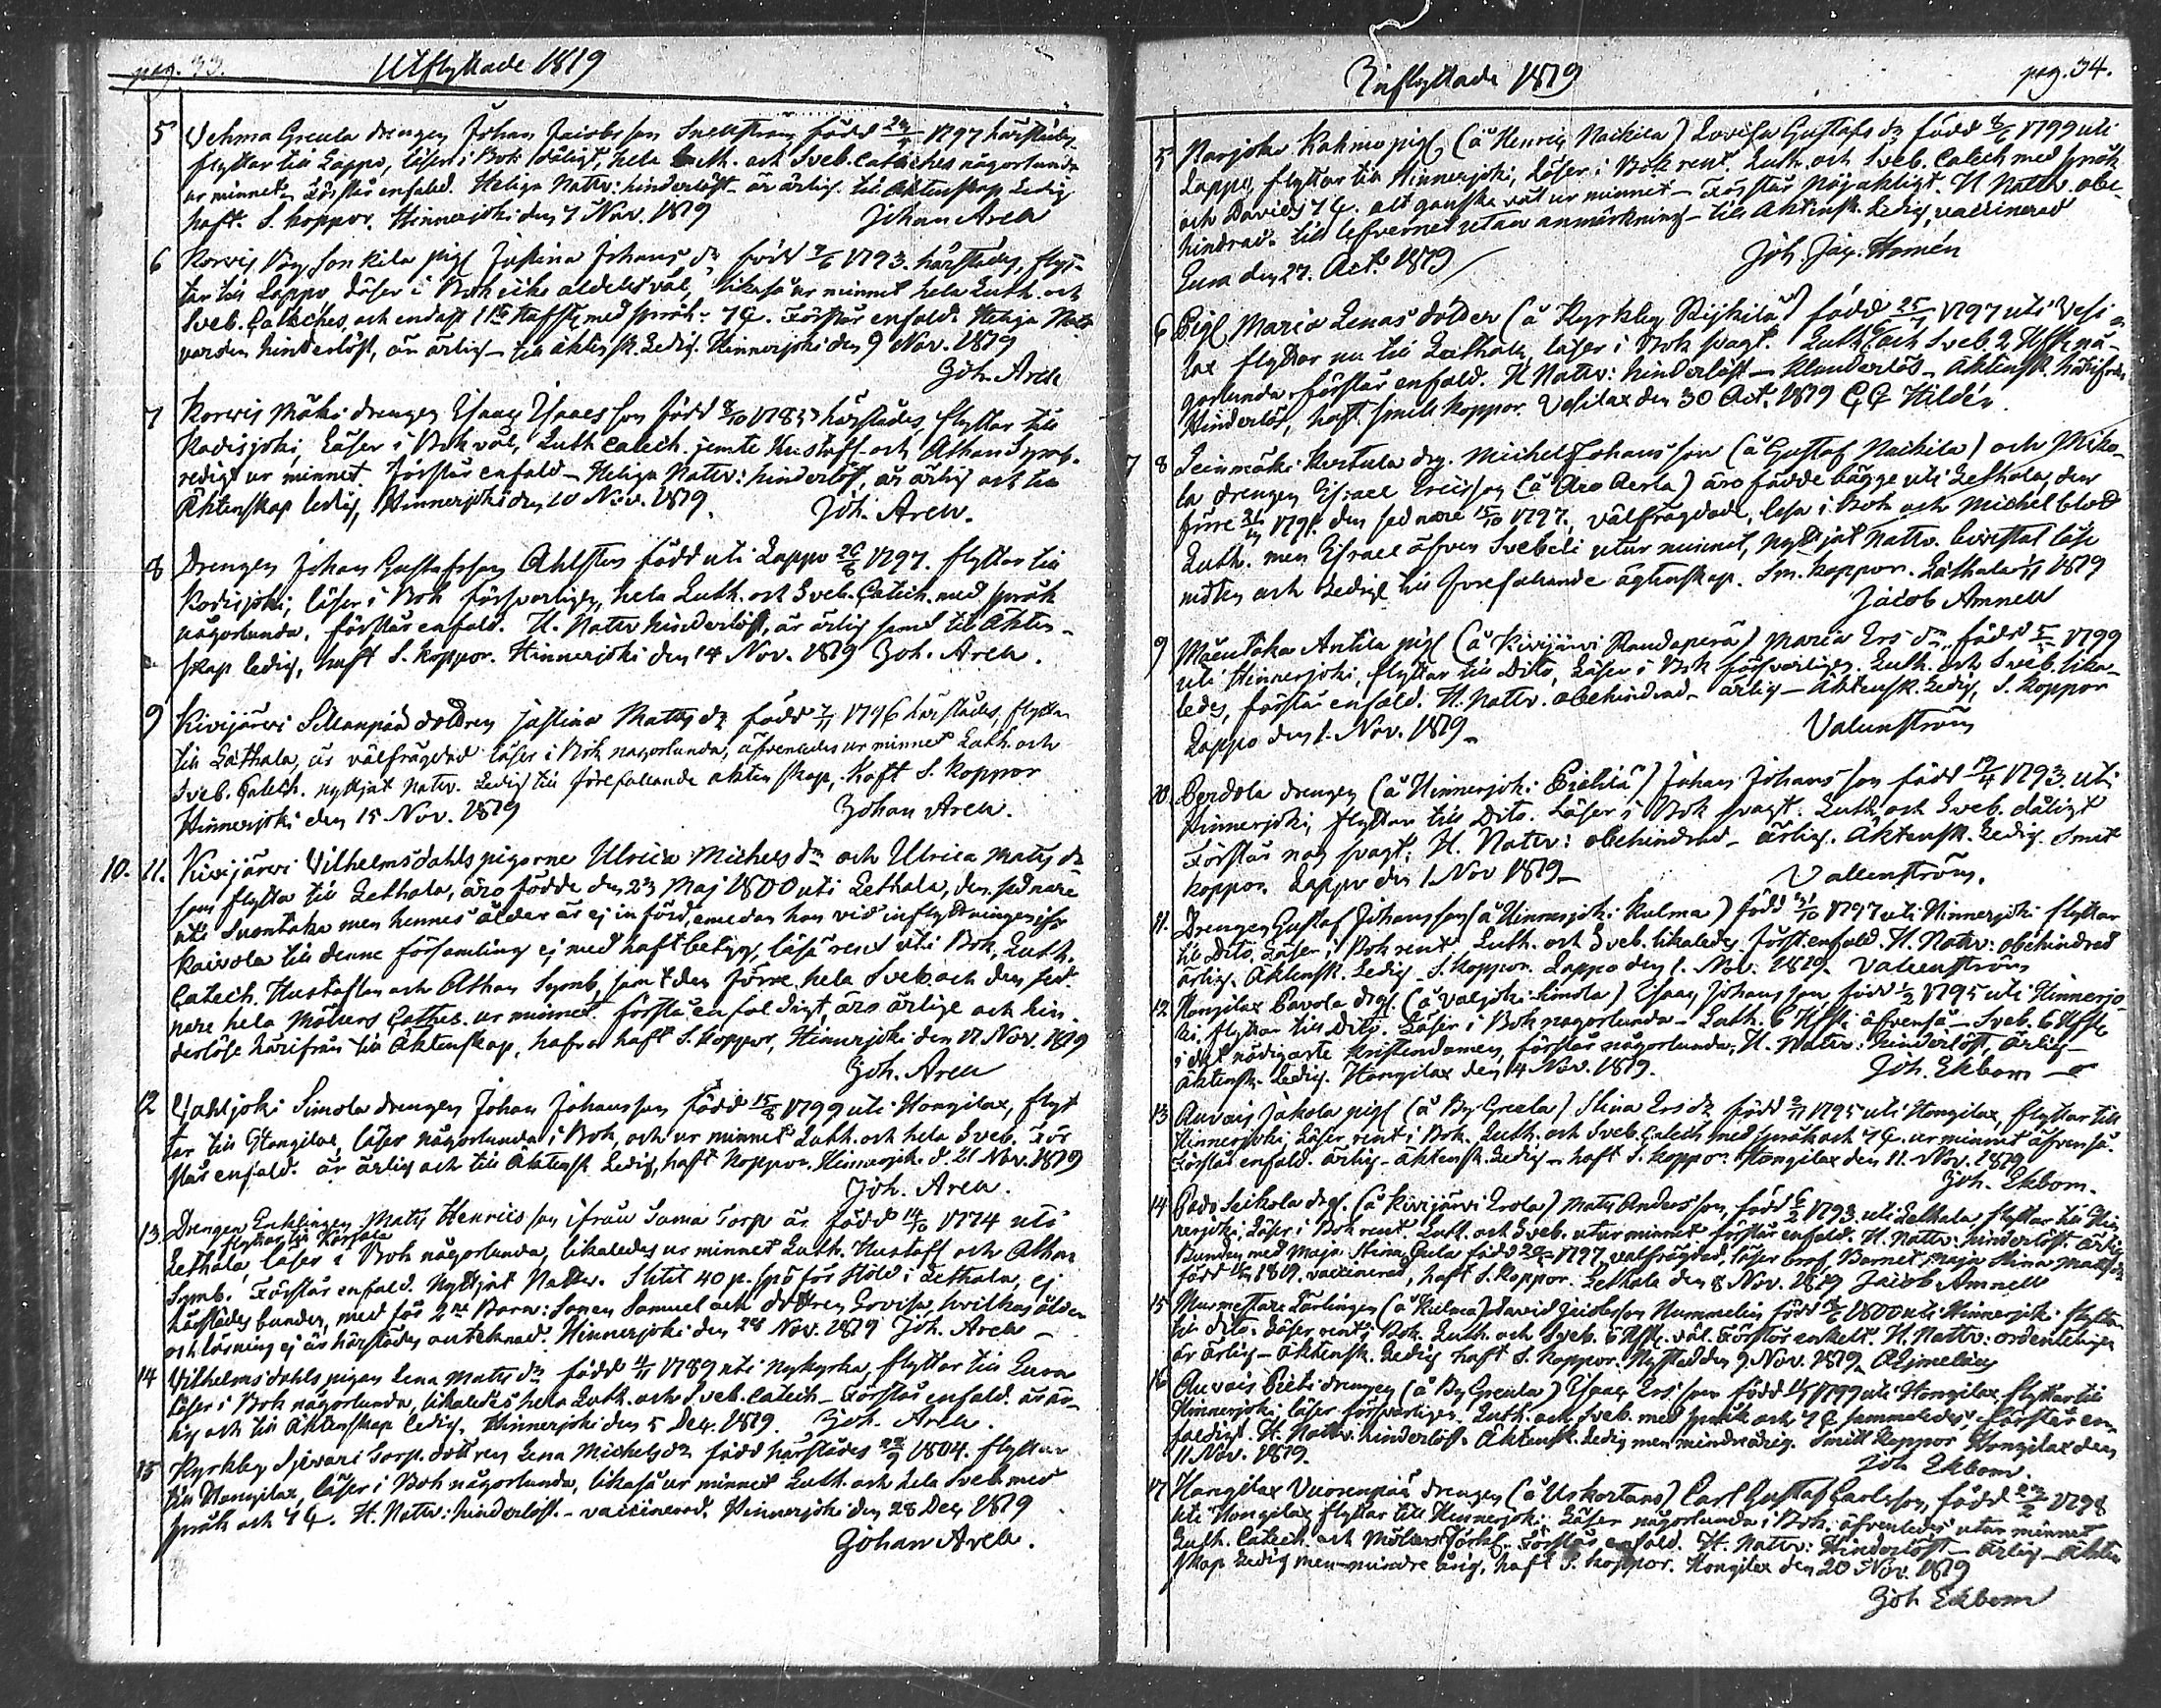 pag. 33. Utflyttade 1819
5 Vehma Greula drengen Johan Jacobsson Snellström född 24/ 1797 härstädes
flyttar till Lappo, läser i Bok dåligt, hela Luth. och Sveb. Cateches någorlunda
ur minnet, Förstår enfald. Heliga Nattv: hinderlöst är ärlig till Äktenskap Ledig
haft. S. koppor. Hinnerjoki den 7 Nov. 1819 Johan Aren
6 Korvis pig Justina Johans dr född 2/6 1793. härstädes, flyt-
tar till Lappo, Läser i Bok icke aldeles väl, likaså ur minnet hela Luth. och
Sveb. Catches, och endast med språk. Förstår enfald. Heliga Natt-
varden hinderlöst, är ärlig till äktensk. Ledig. Hinnerjoki den 9 Nov. 1819
Joh. Aren
7 Korvis Mäki drengen Isaac Isaacsson född 8/10 1783 härstädes, flyttar till
Kodisjoki, Läser i Bok väl, Luth Catech. jemte Hustafl. och Athan Symb.
redigt ur minnet. Förstår enfald. Heliga Nattv: hinderlöst, är ärlig och till
Äktenskap ledig, Hinnerjoki den 10 Nov. 1819. Joh. Aren.
8 Drengen Johan Gustafsson Ahlsten född uti Lappo 26/8 1797. flyttar till
Kodisjoki, läser i Bok försvarligen, hela Luth. och Sveb. Catech. med språk
någorlunda. förstår enfald. H. Nattv hinderlöst, är ärlig samt till Äkten-
skap ledig, haft S. koppor. Hinnerjoki den 14 Nov. 1819 Joh. Aren.
9 Kivijärvi Sillanpää dottren Justina Matts dr född 7/11 1796 härstädes, flyttar
till Lethala, är välfrägdad läser i Bok någorlunda, äfvenledes ur minnet Luth. och
Sveb. Catech. nyttjat Nattv. Ledig till förefallande äktenskap, haft S. koppor
Hinnerjoki den 15 Nov. 1819 Johan Aren.
10. 11. Kivijärvi Vilhelmsdahls pigorne Ulrica Michels dr och Ulrica Matts dr
som flytta till Lethala, äro födde den 23 Maj 1800 uti Lethala, den sednare
uti Suontaka men hennes ålder är ej införd, emedan hon vid inflyttningen ifr
Kaivola till denne församling ej med haft betyg, läsa rent uti Bok, Luth.
Catech. Hustaflan och Athan Symb, samt den förre hela Sveb. och den sed-
nare hela Möllers Cathes. ur minnet förstå enfaldigt, äro ärlige och hin-
derlöse härifrån till Äktenskap, hafva haft S. koppor, Hinnerjoki den 17 Nov. 1819
Joh. Aren
12 Valjoki Simola drengen Johan Johansson född 15/8 1799 uti Hongilax, flyt
tar till Hongilax, läser någorlunda i Bok, och ur minnet Luth. och hela Sveb. För
står enfald. är ärlig och till Äktensk. Ledig, haft koppor. Hinnerjoki d. 21 Nov. 1819
Joh. Aren.
13. Drengen Enklingen Matts Henricsson ifrån Sama Torp är född 14/10 1774 uti
flyttar till Karjala
Lethala, läser i Bok någorlunda, likaledes ur minnet Luth. Hustafl och Athan
Symb. Förstår enfald. Nyttjat Nattv. Slitit 40 p. spö för stöld i Lethala, ej
härstädes bunden, med för 2ne Barn: Sonen Samuel och dottren Lovisa, hvilkas ålder
och läsning ej är härstädes antecknad. Hinnerjoki den 28 Nov. 1819 Joh. Aren
14 Vilhelmsdahls pigan Lena Matts dr född 4/11 1789 uti Nykyrka, flyttar till Eura
läser i Bok någorlunda, likaledes hela Luth. och Sveb. Catech. Förstår enfald. är är-
lig och till Äktenskap ledig. Hinnerjoki den 5 Dec. 1819. Joh. Aren.
15 Kyrkby Torp. dottren Lena Michelsdr född härstädes 22/9 1804. flyttar
till Hongilax, läser i Bok någorlunda, likaså ur minnet Luth. och hela Sveb. med
språk och H. Nattv: hinderlöst. vaccinerad. Hinnerjoki den 28 Dec 1819
Johan Aren.
Inflyttade 1819 pag. 34.
5 Narjoki Rahmo pig (å Henric Nackila) Lovisa Gustafs dr född 8/6 1799 uti
Lappo, flyttar till Hinnerjoki, Läser i Bok rent. Luth. och Sveb. Catech med språk
och Davids alt ganska väl ur minnet. Förstår nöjaktigt. H Nattv. obe-
hindrad. till lefvernet utan anmärkning till Äktensk. Ledig, vaccinerad
Eura den 27. Oct. 1819 Joh. Jac. Homén
6 Pig. Maria Lenas dotter (å Kyrkby Röjkilä) född 25/7 1797 uti Vesi-
lax flyttar nu till Lethala, läser i Bok svagt. Luth. och Sveb. 2 Hfst. nå-
gorlunda, förstår enfald. H Nattv: hinderlöst Klanderlös Äktensk. härifrån
Hinderlös, haft smitt koppor. Vesilax den 30 Oct. 1819 C. G. Hildén.
7 8 Seinmäki Kertula drg. Michel Johansson (å Gustaf Nackila) och Miko-
la drengen Israel Ericsson (å Aro Aerla) äro födde bägge uti Lethala, den
förre 1798. den sednare 15/10 1797., välfrägdade, läsa i Bok och Michel blott
Luth. men Israel äfven Svebeli utur minnet, nyttjat Nattv. bevistat läse
möten och Ledige till förefallande ägtenskap. Sm. koppor. Lethala 1/11 1819
Jacob Amnell
9 Mäentaka Antila pig (å Kivijärvi Randaperä) Maria Ers dr född 1799
uti Hinnerjoki, flyttar till Dito, Läser i Bok försvarligen. Luth. och Sveb. lika-
ledes, förstår enfald. H. Nattv. obehindrad ärlig Äktensk. Ledig, S. koppor
Lappo den 1. Nov. 1819 Valenström
10. Perdola drengen (å Hinnerjoki Pietilä) Johan Johansson född 12/4 1793. uti
Hinnerjoki, flyttar till Dito. Läser i Bok svagt. Luth. och Sveb. dåligt
Förstår nog svagt: H. Nattv: obehindrad ärlig. Äktensk. Ledig. Smit
koppor. Lappo den 1. Nov 1819 Vallenström.
11. Drengen Gustaf Johansson (å Hinnerjoki Kulma) född 31/10 1797 uti Hinnerjoki flyttar
till Dito. Läser i Bok rent Luth. och Sveb. likaledes, först. enfald. H. Nattv: obehindrad
ärlig. Äktensk. Ledig. S. koppor. Lappo den 1. Nov. 1819. Valenström
12 Hongilax Pavola drg. (å Valjoki Simola) Isaac Johansson född 1/2 1795 uti Hinnerjo-
ki, flyttar till Dito. Läser i Bok någorlunda Luth. 6 Hfst. äfvenså Sveb. 6 Hfst
i det nödigaste Kristendomen, förstår någorlunda. H. Nattv: hinderlöst, ärlig
äktensk. Ledig. Hongilax den 4 Nov. 1819. Joh. Ekbom
13 Auvais Jakola pig (å By Greela) Stina Ersdr född 2/11 1795 uti Hongilax, flyttar till
Hinnerjoki, Läser rent i Bok. Luth. och Sveb. Catech. med språk och ur minnet äfvenså.
Förstår enfald. ärlig äktensk. Ledig haft S. koppor. Hongilax den 11. Nov. 1819
Joh. Ekbom.
14 Pado Seikola drg. (å Kivijärvi Erola) Matts Andersson född 6/2 1793. uti Lethala flyttar till Hin
nerjoki, Läser i Bok rent. Luth. och Sveb. utur minnet förstår enfald. H. Nattv: hinderlöst. ärlig
Bunden med Maja Stina född 1797, välfrägdad, läser Barnet Maja Stina Matts dr
född 1819. vaccinerad, haft S. koppor. Lethala den 8 Nov. 1819 Jacob Amnell
15 Murmestare Lärlingen (å Kulma) David Jacobsson Nummelin född 1800 uti Hinnerjoki flyttar
till dito. Läser rent i Bok. Luth. och Sveb. 6 Hfst. väl. Förstår enkelt. H. Nattv: ordenteligen
är ärlig äktensk. Ledig haft S. koppor. Nystad den 9. Nov. 1819
16 Auvais Pieti drengen (å By Greula) Isaac Ersson född 1799 uti Hongilax, flyttar till
Hinnerjoki, läser försvarligen. Luth. och Sveb. med språk och sammaledes, förstår en-
faldigt. H. Nattv. hinderlöst. Äktensk. Ledig men minderårig. Smitt koppor Hongilax den
11 Nov. 1819. Joh Ekbom.
17 Hongilax Vuorenpää drengen (å Uskortano) Carl Gustaf Carlsson, född 1798
uti Hongilax, flyttar till Hinnerjoki. Läser någorlunda i Bok, äfvenledes utur minnet
Luth. Catech. och Möllers Förkl. Förstår enfald. H. Nattv: Hinderlöst ärlig Äkten
skap Ledig men mindre årig, haft S. koppor. Hongilax den 20 Nov. 1819
Joh Ekbom